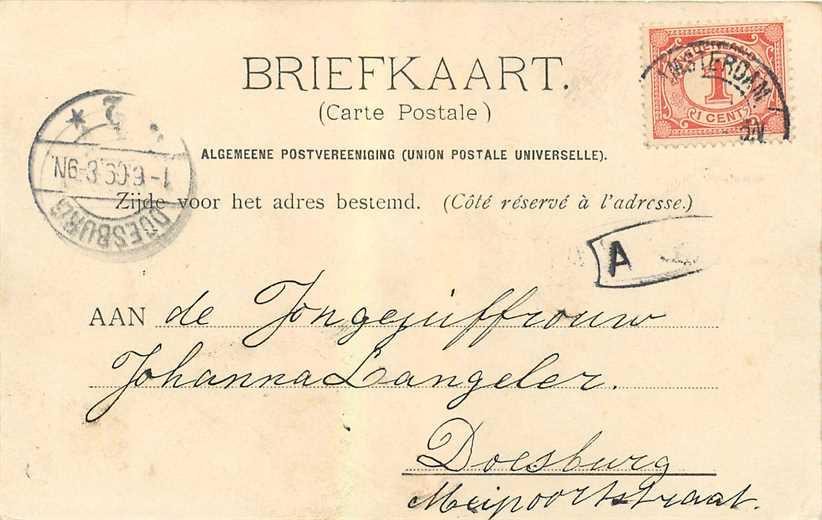 BRIEFKAART.
(Carte Postale)
ALGEMEENE POSTVEREENIGING (UNION POSTALE UNIVERSELLE).
Zijde voor het adres bestemd. (Côté réservé à l'adresse.)
AMSTERDAM
1
1 CENT
DOESBURG
A
AAN de Jongejuffrouw
Johanna Langeler.
Doesburg
Meipoortstraat.